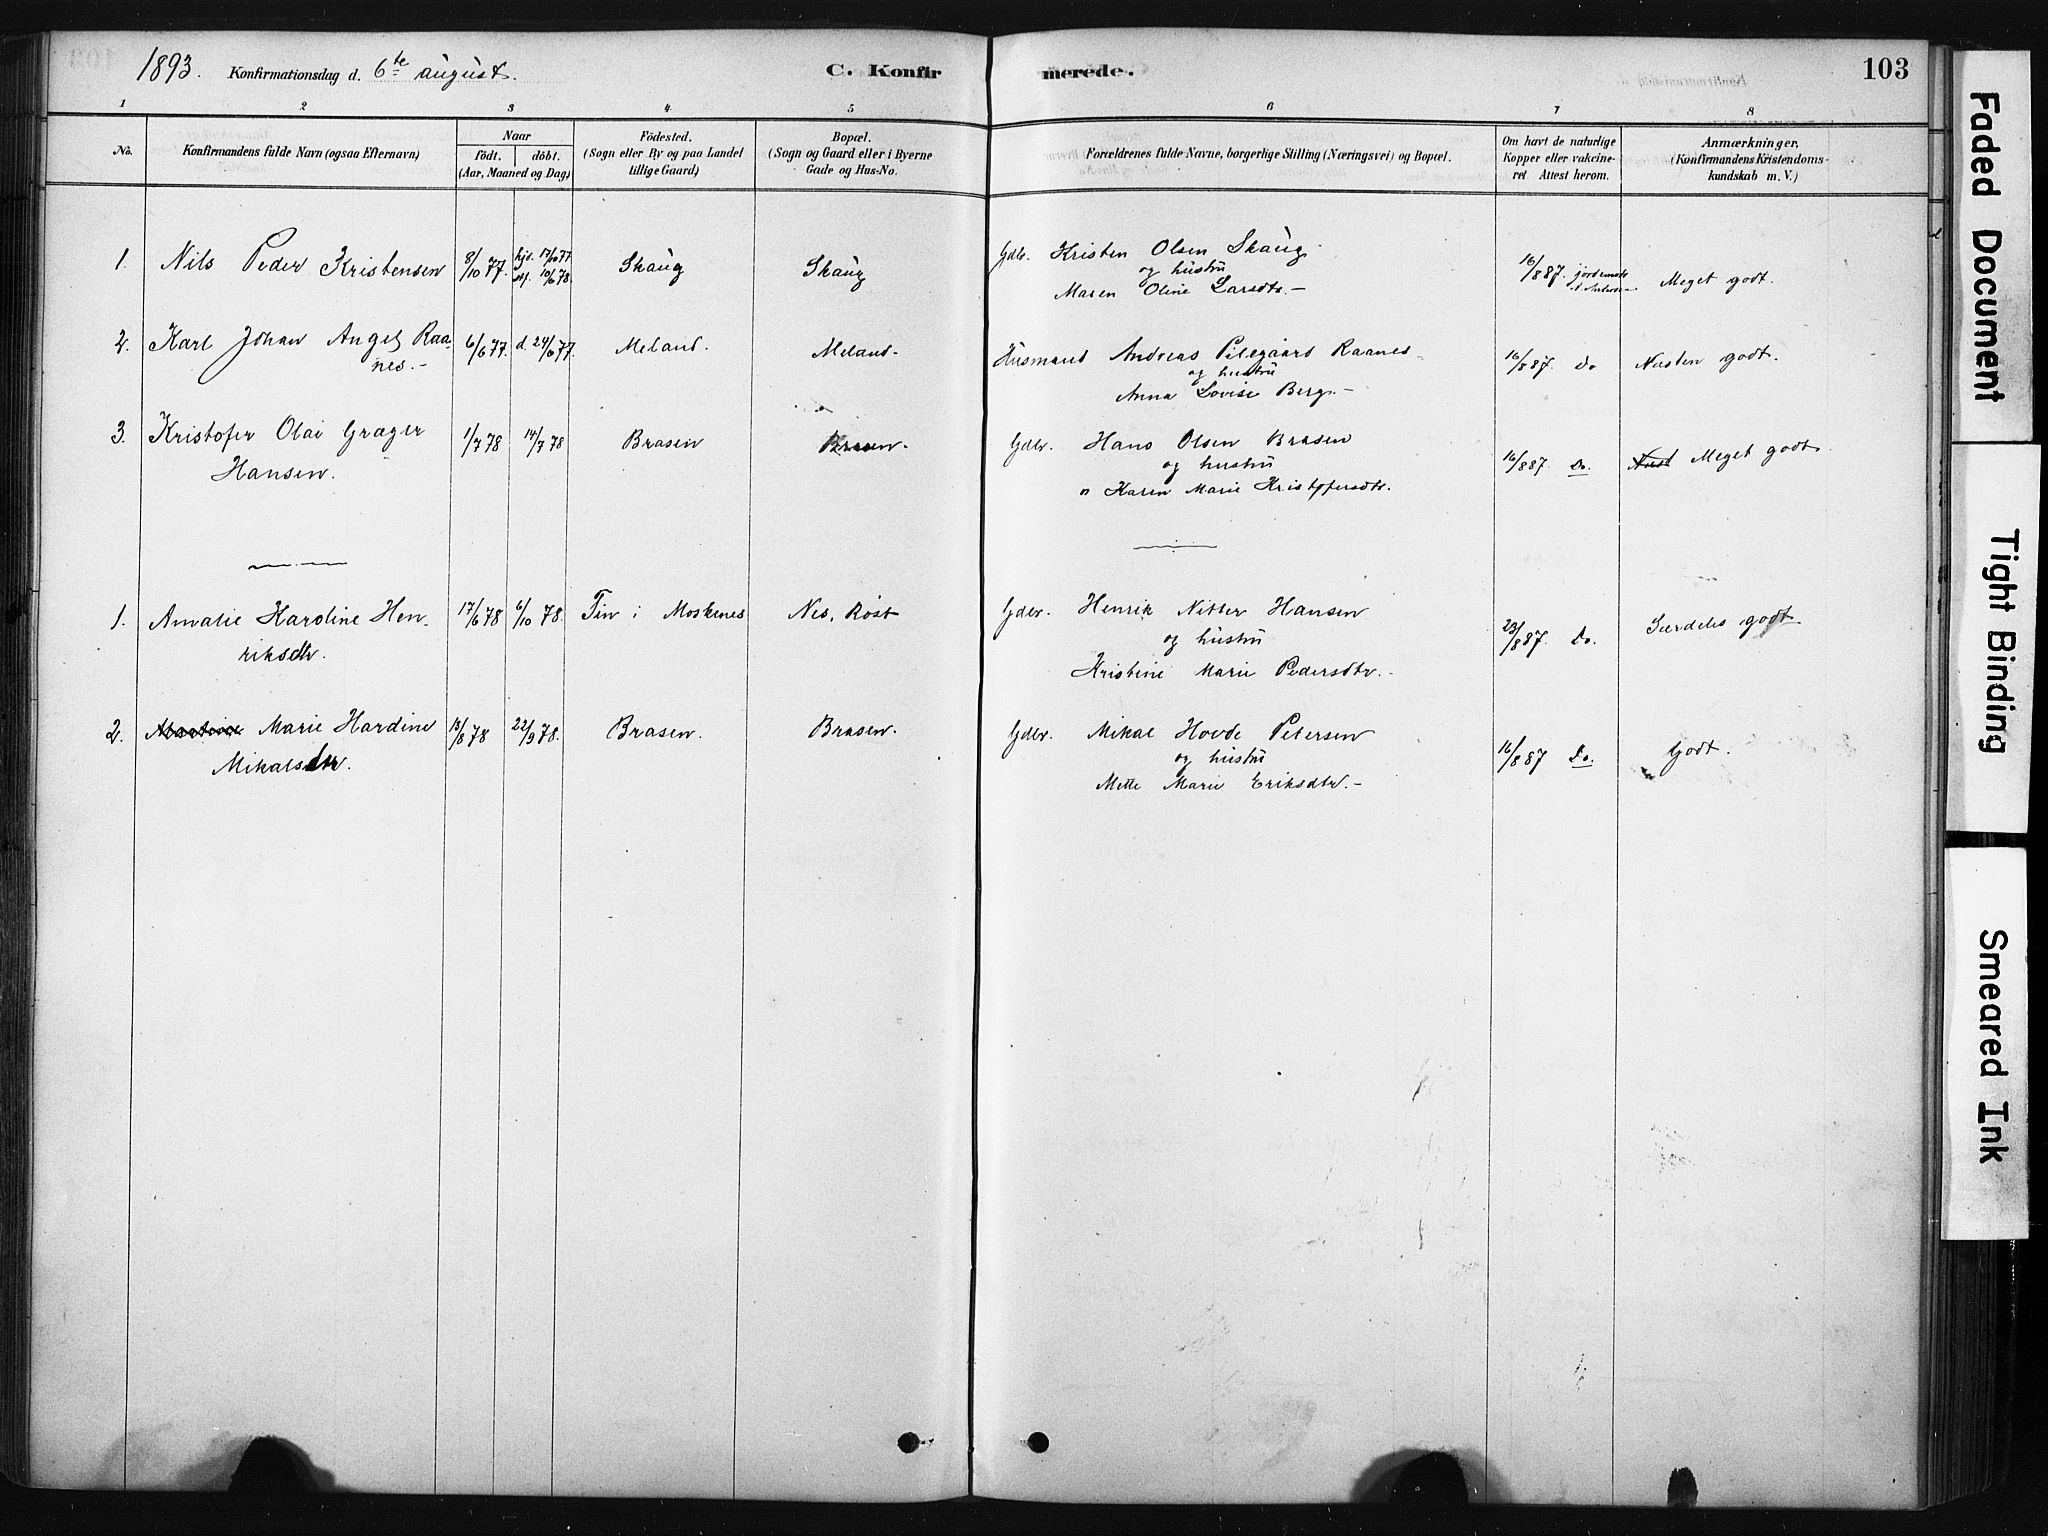 1893. Konfirmationsdag d. 6te august. C. Konfir merede. 103
1 2 3 4 5 6 7 8
No. Konfirmandens fulde Navn (ogsaa Efternavn) Naar födt. döbt. (Aar, Maaned og Dag) Födested. (Sogn eller By og paa Landet tillige Gaard) Bopæl. (Sogn og Gaard eller i Byerne Gade og Hus-No. Forældrenes fulde Navne, borgerlige Stilling (Næringsvei) og Bopæl. Om havt de naturlige Kopper eller vakcineret Attest herom. Anmærkninger, (Konfirmandens Kristendomskundskab m. V.)
1. Nils Peder Kristensen 8/10 77. hjd. 17/10 77 st. 10/6 78. Skaug Skaug Gdbr. Kristen Olsen Skaug 16/8 87. Meget godt.
og hustru
Maren Oline Larsdtr. –
2. Karl Johan Angel Raa- 6/6 77. d. 24/6 77. Meland. Meland. Husmand Andreas Pilegaard Raanes 16/8 87. Do Næsten godt.
nes. – og hustru
Anna Lovise Berg. –
3. Kristofer Olai Grøger 1/7 78 14/7 78 Brasen Brasen. Gdbr. Hans Olsen Brasen 16/8 87. Do. Næst Meget godt.
Hansen. og hustru
Karen Marie Kristofersdtr.
1. Amalie Karoline Hen- 17/6 78 6/10 78. Tin i Moskenes Nes, Røst Gdbr. Henrik Nitter Hansen 23/8 87. Do. Særdeles godt.
riksdtr. og hustru
Kristine Marie Pedersdtr. –
2. Marie Hardine 13/8 78 22/9 78. Brasen. Brasen. Gdbr. Mikal Hovde Petersen 16/8 87 Do. Godt.
Mikalsdtr. og hustru
Mette Marie Eriksdtr. –
Faded Document
Tight Binding
Smeared Ink